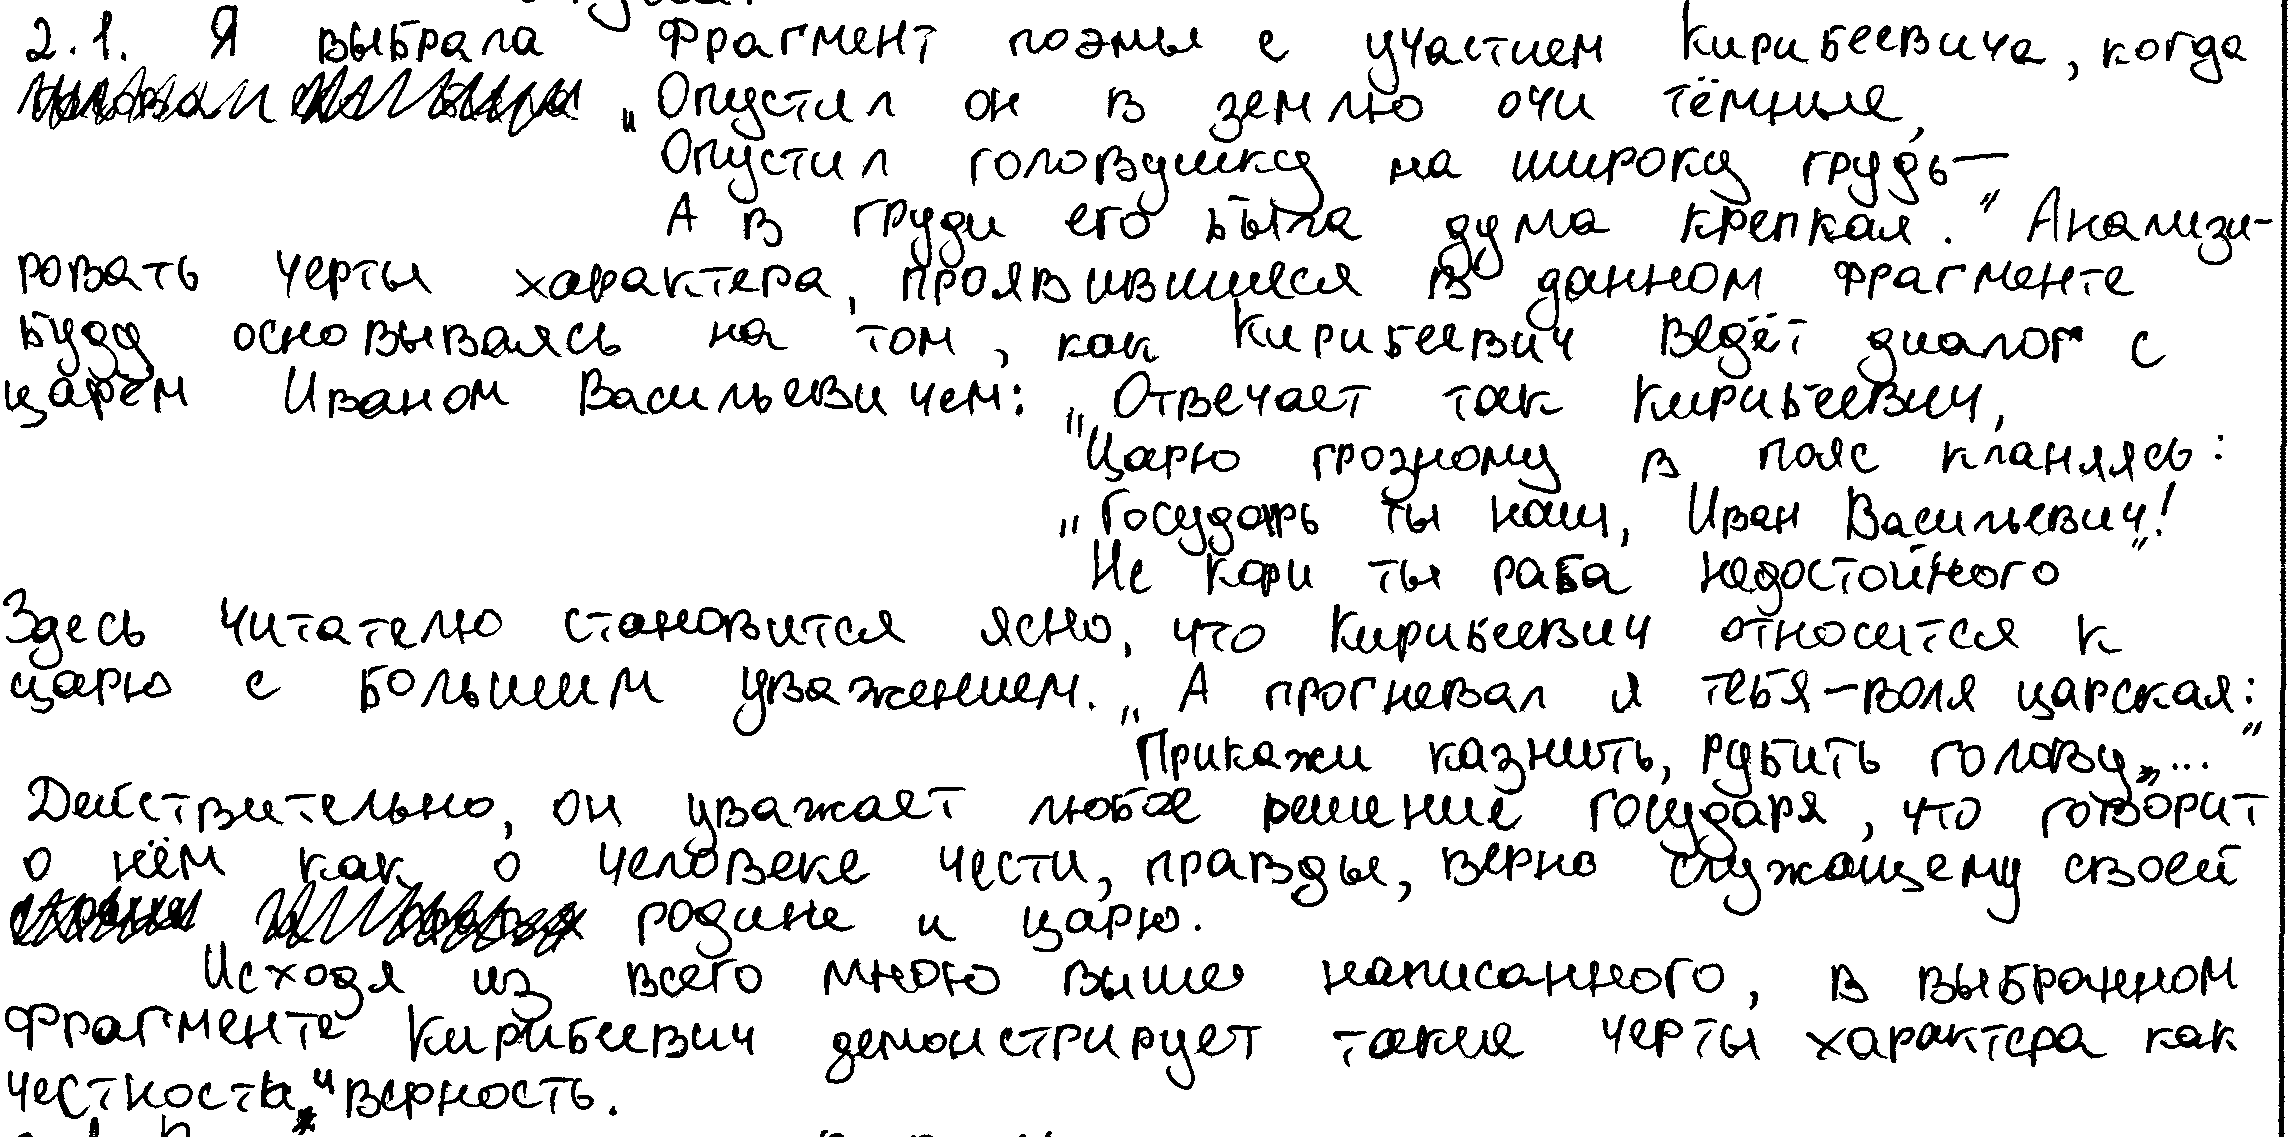 2.1. Я выбрала фрагмент поэмы с участием Кирибеевича, когда
„Опустил он в землю очи тёмные,
Опустил головушку на широку грудь—
А в груди его была дума крепкая." Анализи-
ровать черты характера, проявившиеся в данном фрагменте
буду основываясь на том, как Кирибеевич ведёт диалог с
царём Иваном Васильевичем: „Отвечает так Кирибеевич,
"Царю грозному в пояс кланяясь:
„Государь ты наш, Иван Васильевич!
Не кори ты раба недостойного"
Здесь читателю становится ясно, что Кирибеевич относится к
царю с большим уважением. „А прогневал я тебя—воля царская:
Прикажи казнить, рубить голову„..."
Действительно, он уважает любое решение государя, что говорит
о нём как о человеке чести, правды, верно служащему своей
родине и царю.
Исходя из всего мною выше написанного, в выбранном
фрагменте Кирибеевич демонстрирует такие черты характера как
честность и верность.